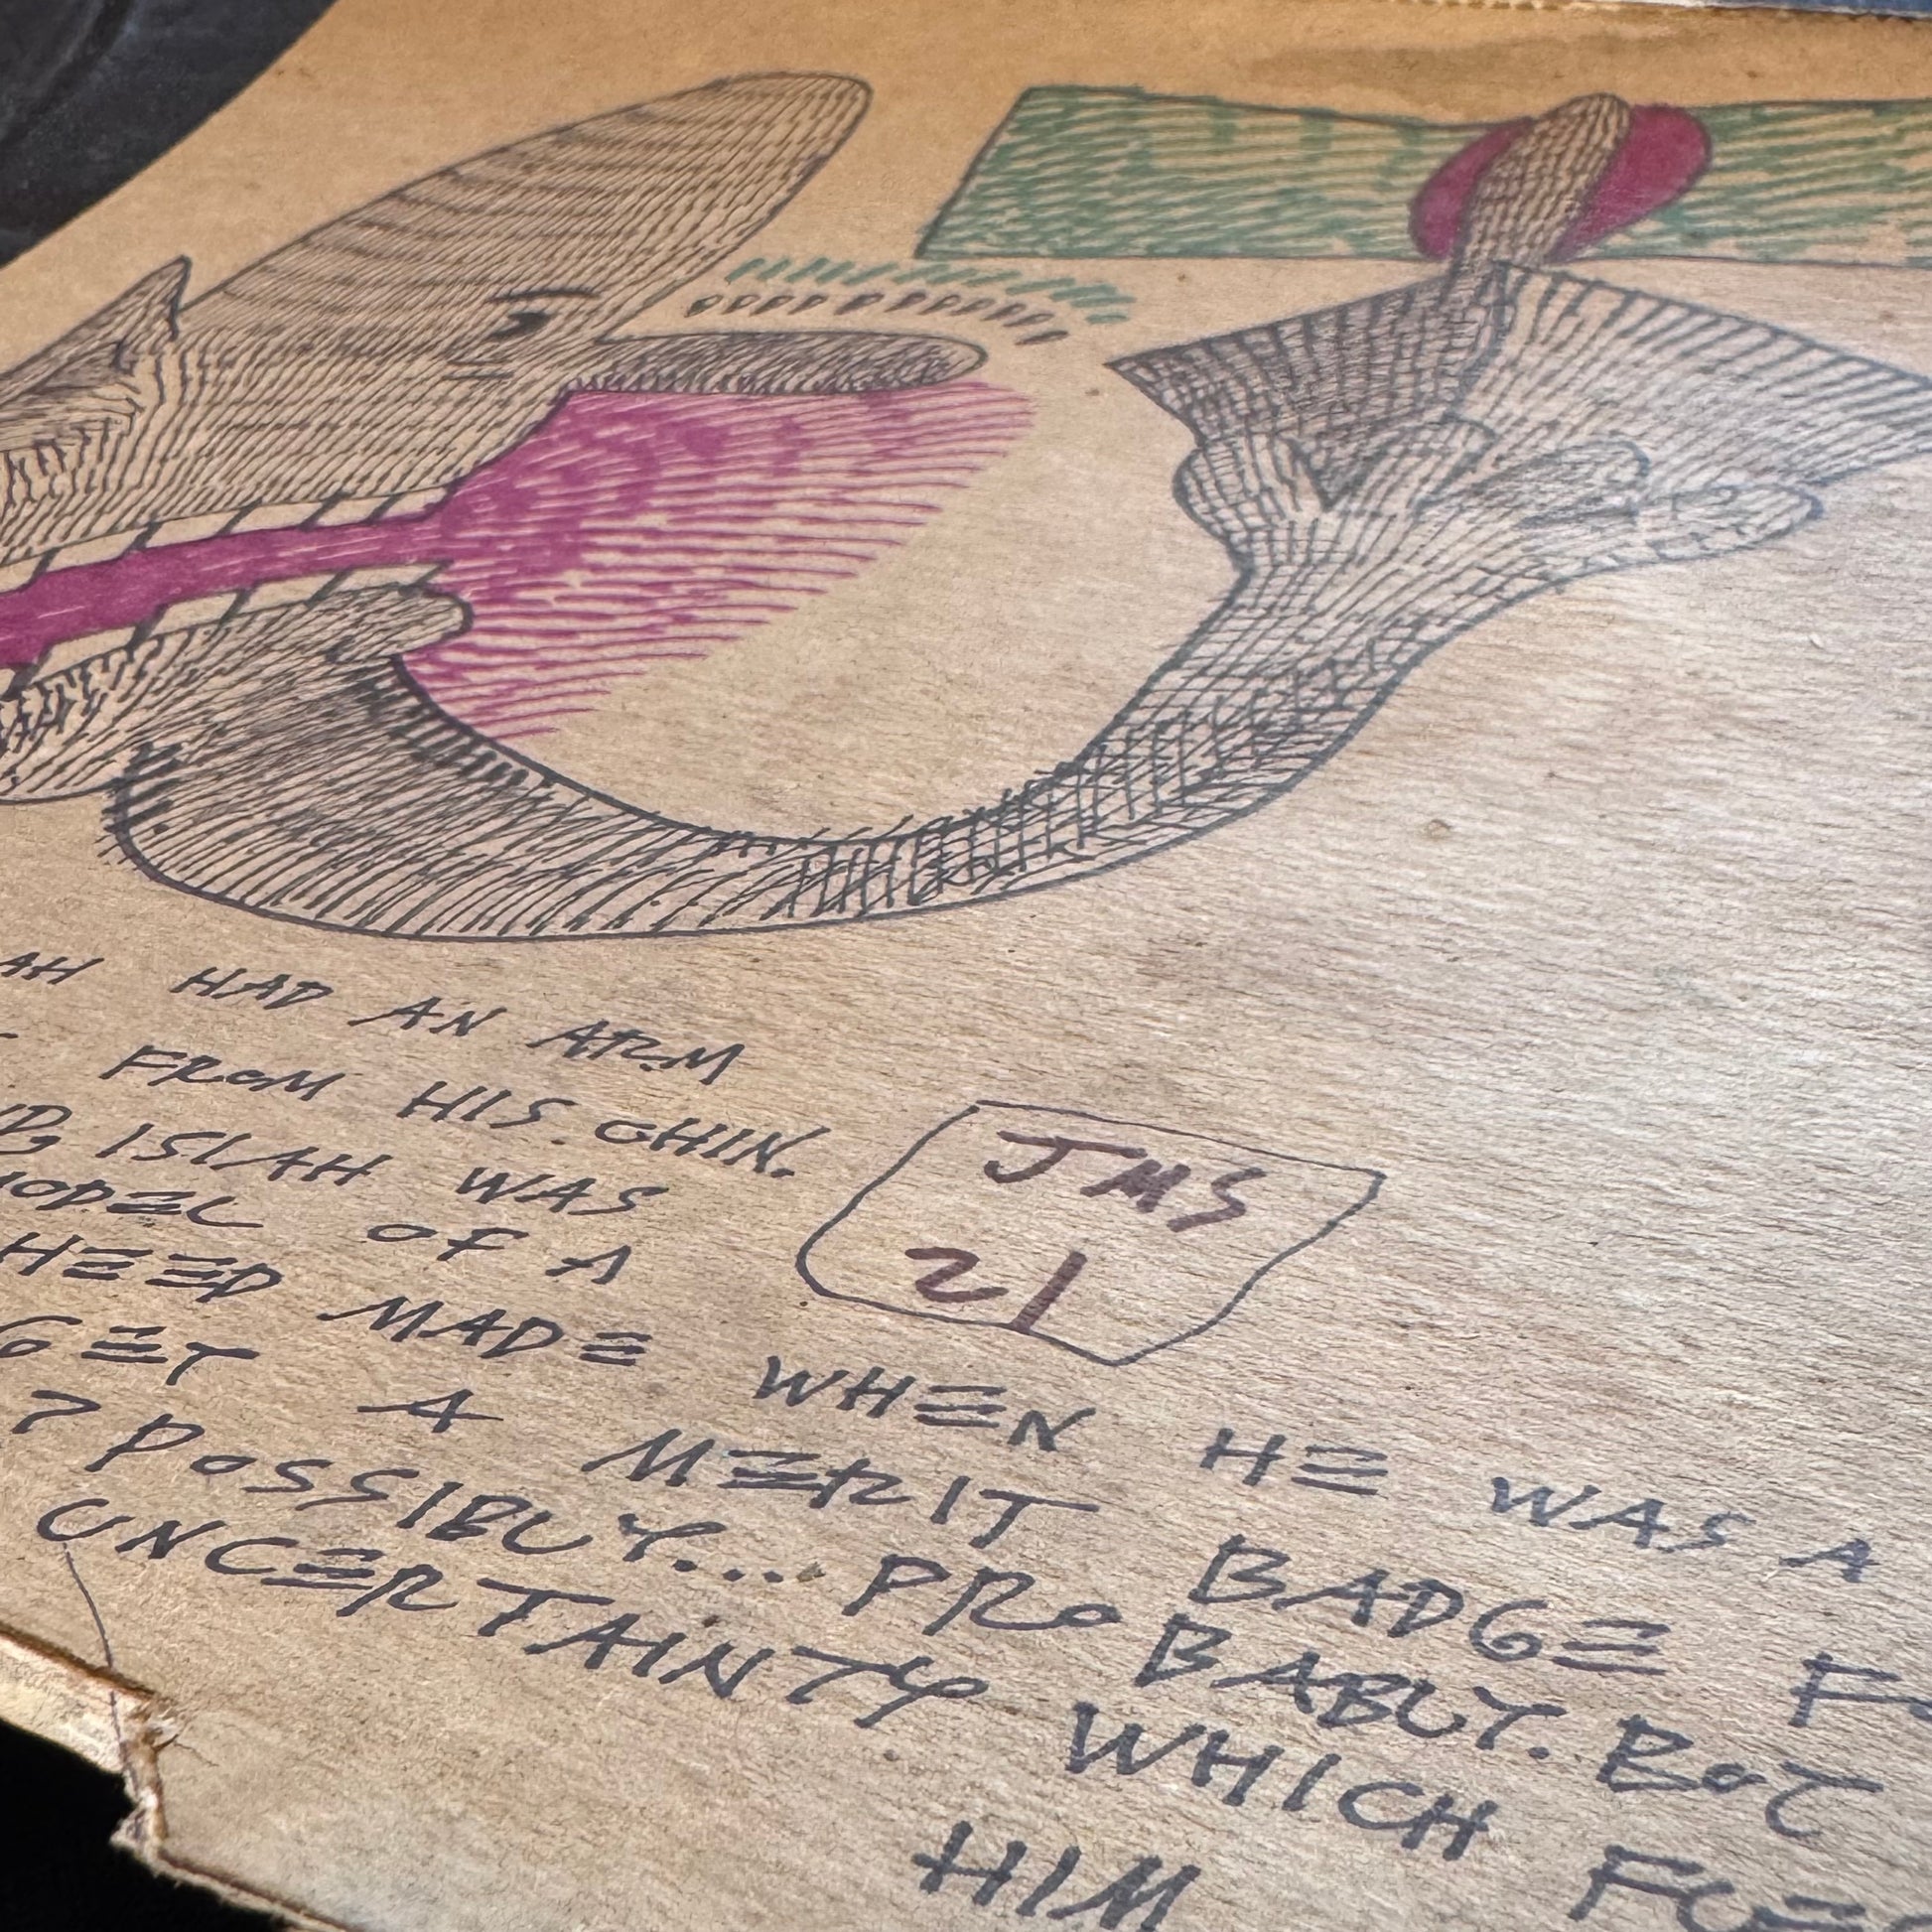 AH HAD AN ARM
FROM HIS CHIN.
ISIAH WAS
MODEL OF A
HEED MADE WHEN HE WAS A
GET A MERIT BADGE F
? POSSIBLY... PROBABLY. BUT
UNCERTAINTY WHICH FLE
HIM
JMS
21